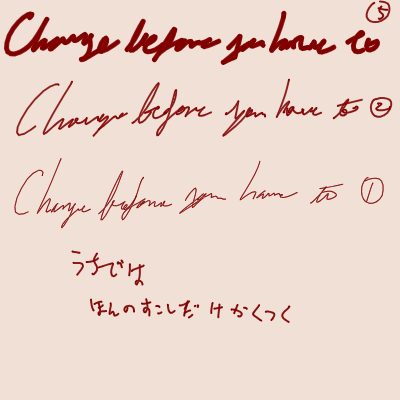 Change before you have to ⑤
Change before you have to ②
Change before you have to ①
うちでは
ほんのすこしだけかくつく